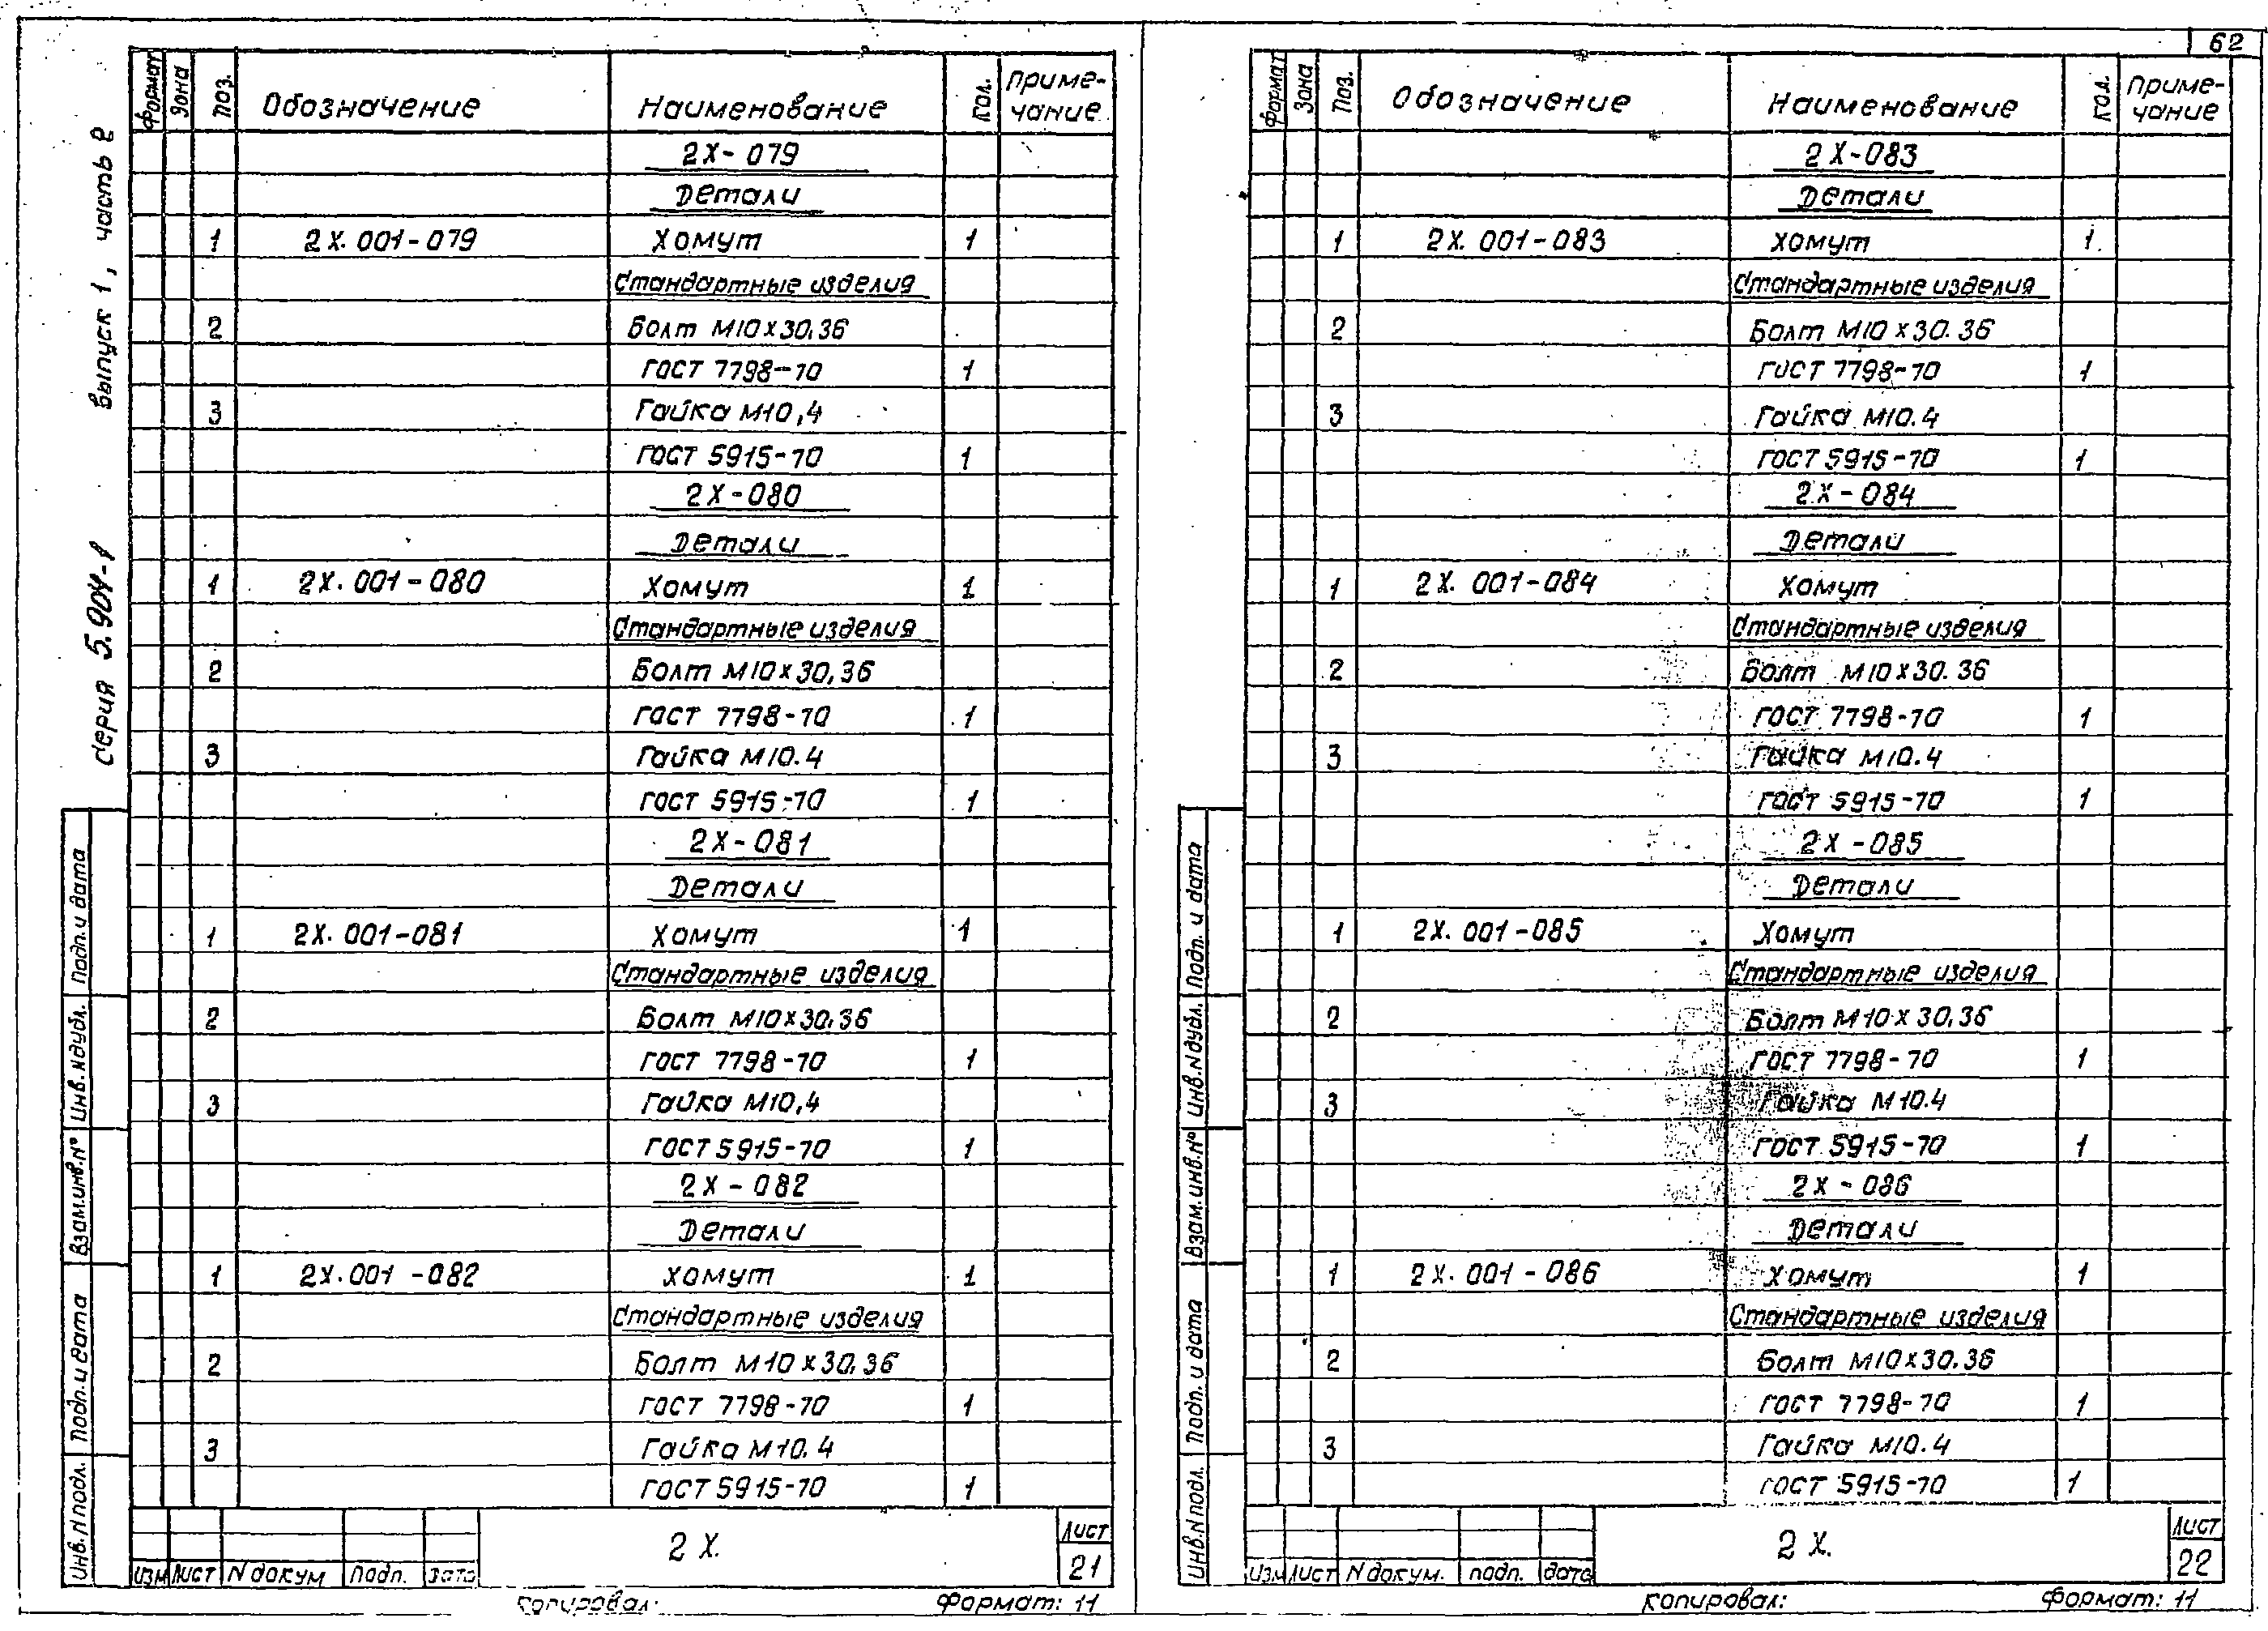 62
Серия 5.904-1 Выпуск 1, часть 2
Формат Зона Поз. Обозначение Наименование Кол. Приме-
чание
2Х-079
Детали
1 2Х.001-079 Хомут 1
Стандартные изделия
2 Болт М10х30,36
ГОСТ 7798-70 1
3 Гайка М10,4
ГОСТ 5915-70 1
2Х-080
Детали
1 2Х.001-080 Хомут 1
Стандартные изделия
2 Болт М10х30,36
ГОСТ 7798-70 1
3 Гайка М10.4
ГОСТ 5915-70 1
2Х-081
Детали
1 2Х.001-081 Хомут 1
Стандартные изделия
2 Болт М10х30,36
ГОСТ 7798-70 1
3 Гайка М10,4
ГОСТ 5915-70 1
2Х-082
Детали
1 2Х.001-082 Хомут 1
Стандартные изделия
2 Болт М10х30,36
ГОСТ 7798-70 1
3 Гайка М10.4
ГОСТ 5915-70 1
Инв.N подл. Подп. и дата Взам.инв.N° Инв.N дубл. Подп. и дата
2Х.
Лист
21
Изм Лист N докум Подп. дата
Копировал: Формат: 11
Формат Зона Поз. Обозначение Наименование Кол. Приме-
чание
2Х-083
Детали
1 2Х.001-083 Хомут 1
Стандартные изделия
2 Болт М10х30.36
ГОСТ 7798-70 1
3 Гайка М10.4
ГОСТ 5915-70 1
2Х-084
Детали
1 2Х.001-084 Хомут 1
Стандартные изделия
2 Болт М10х30.36
ГОСТ 7798-70 1
3 Гайка М10.4
ГОСТ 5915-70 1
2Х-085
Детали
1 2Х.001-085 Хомут 1
Стандартные изделия
2 Болт М10х30,36
ГОСТ 7798-70 1
3 Гайка М10.4
ГОСТ 5915-70 1
2Х-086
Детали
1 2Х.001-086 Хомут 1
Стандартные изделия
2 Болт М10х30.36
ГОСТ 7798-70 1
3 Гайка М10.4
ГОСТ 5915-70 1
Инв.N подл. Подп. и дата Взам.инв.N° Инв.N дубл. Подп. и дата
2Х.
Лист
22
Изм Лист N докум. подп. дата
Копировал: Формат: 11